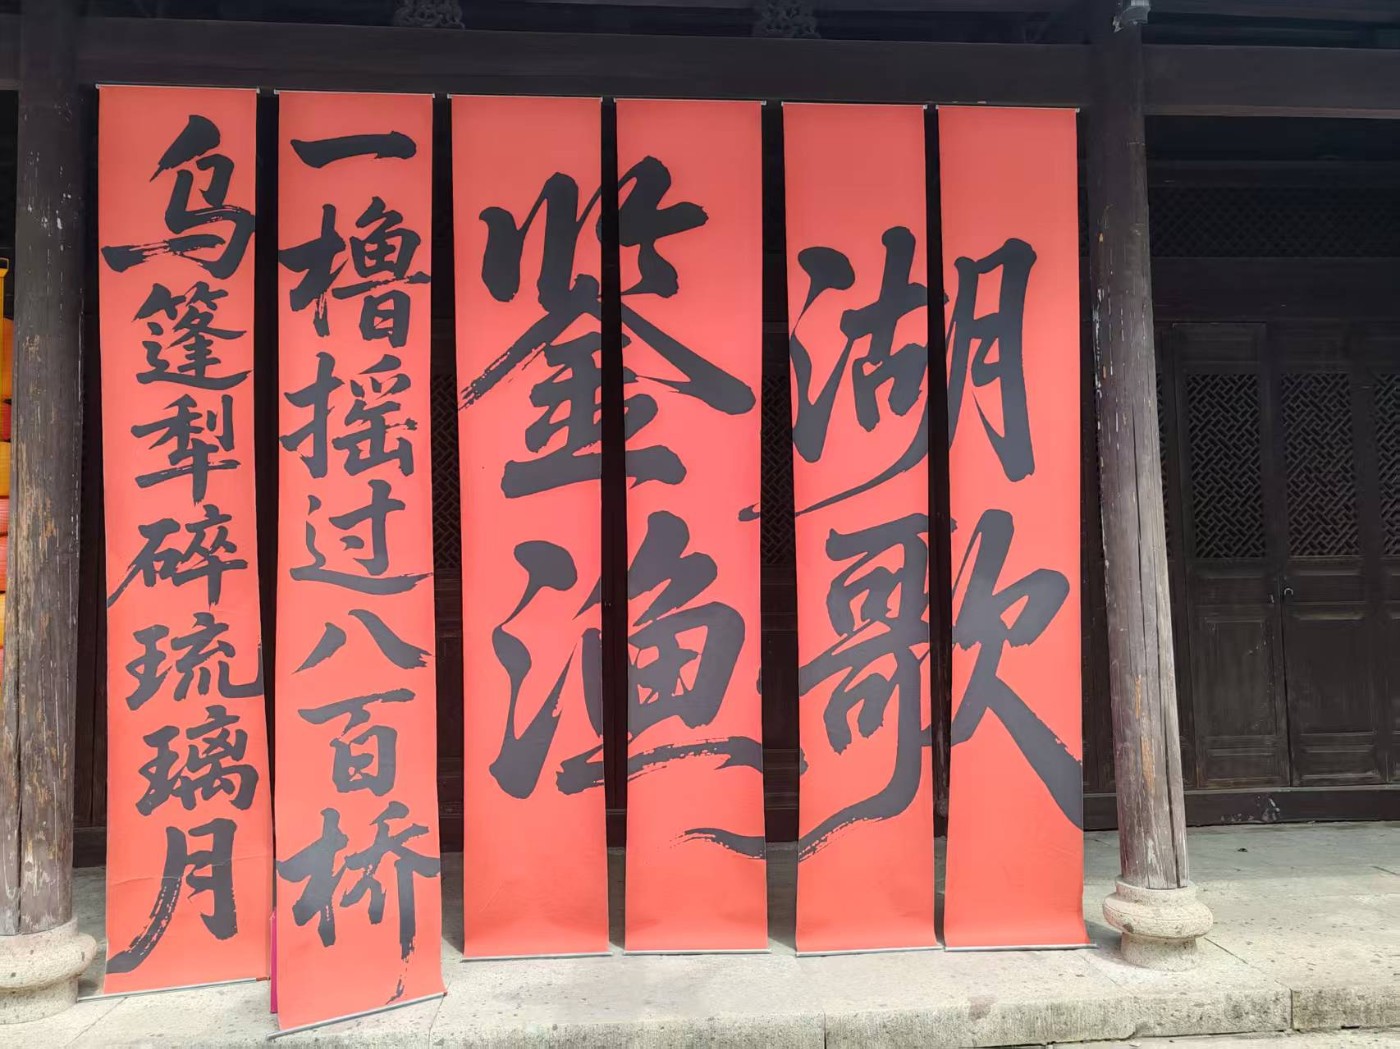 鉴湖
渔歌
一橹摇过八百桥
乌篷犁碎琉璃月